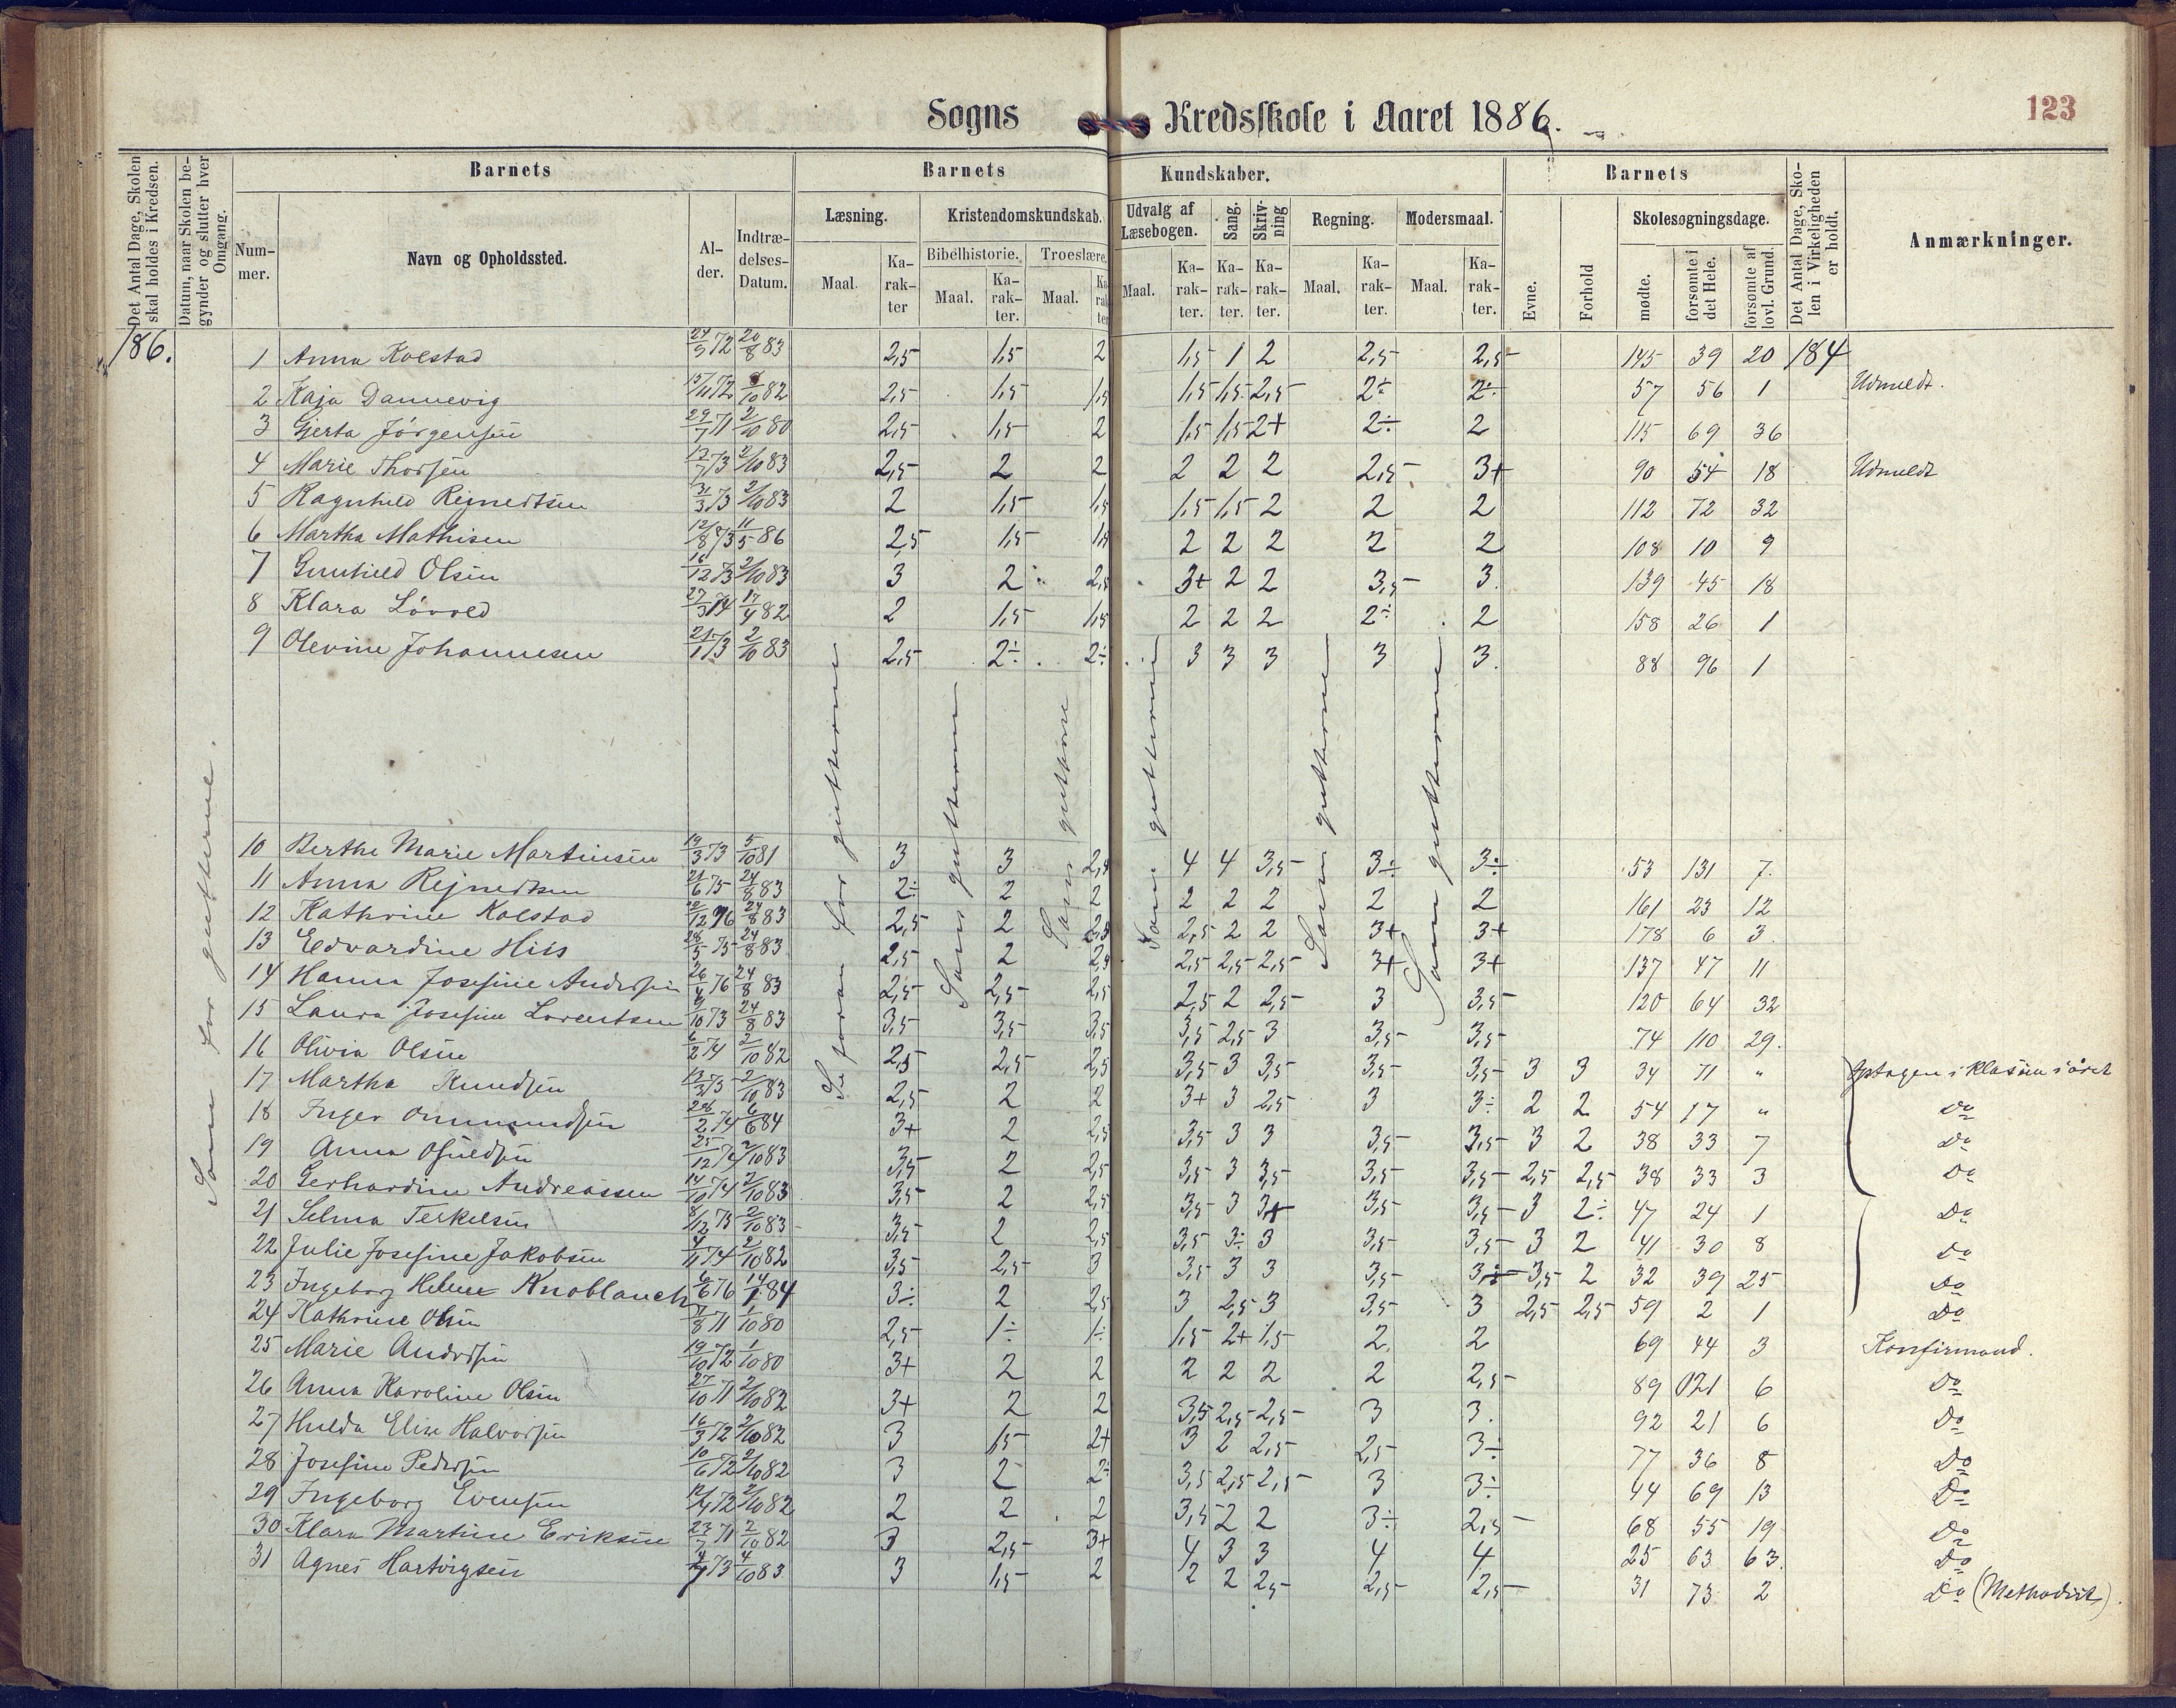 Sogns Kredsskole i Aaret 1886.
123
Det Antal Dage, Skolen skal holdes i Kredsen.
Datum, naar Skolen begynder og slutter hver Omgang.
Barnets
Nummer.
Navn og Opholdssted.
Alder.
Indtrædelses-Datum.
Barnets Kundskaber.
Læsning.
Maal.
Karakter
Kristendomskundskab.
Bibelhistorie.
Maal.
Karakter.
Troeslære.
Maal.
Karakter
Udvalg af Læsebogen.
Maal.
Karakter.
Sang.
Karakter.
Skrivning
Karakter.
Regning.
Maal.
Karakter.
Modersmaal.
Maal.
Karakter.
Barnets
Evne.
Forhold
Skolesøgningsdage.
mødte.
forsømte i det Hele.
forsømte af lovl. Grund.
Det Antal Dage, Skolen i Virkeligheden er holdt.
Anmærkninger.
186.
Som for gutterne.
Se foran for gutterne
Som gutterne
Som gutterne
Som gutterne
Som gutterne
Som gutterne
1 Anna Kolstad 24/9 72 20/8 83 2,5 1,5 2 1,5 1 2 2,5 2,5 145 39 20 184
2 Kaja Dannevig 15/11 72 /10 82 2,5 1,5 1,5 1,5 1,5 2,5 2÷ 2÷ 57 56 1 Udmeldt.
3 Gjerta Jörgensen 29/7 71 2/10 80 2,5 1,5 2 1,5 1,5 2+ 2÷ 2 115 69 36
4 Marie Thorsen 17/7 73 2/10 83 2,5 2 2 2 2 2 2,5 3+ 90 54 18 Udmeldt
5 Ragnhild Reinertsen 31/3 73 2/10 83 2 1,5 1,5 1,5 1,5 2 2 2 112 72 32
6 Martha Mathisen 12/8 73 11/5 86 2,5 1,5 1,5 2 2 2 2 2 108 10 9
7 Gunhild Olsen 16/12 73 2/10 83 3 2 2,5 3+ 2 2 3,5 3. 139 45 18
8 Klara Lövold 27/3 74 17/4 82 2 1,5 1,5 2 2 2 2÷ 2 158 26 1
9 Olevine Johannesen 21/1 73 2/10 83 2,5 2÷ 2÷ 3 3 3 3 3. 88 96 1
10 Berthe Marie Martinsen 19/3 73 5/10 81 3 3 2,5 4 4 3,5 3÷ 3÷ 53 131 7.
11 Anna Rejnertsen 21/6 75 24/8 83 2÷ 2 2 2 2 2 2 2 161 23 12
12 Kathrine Kolstad /12 76 24/8 83 2,5 2 2,5 2,5 2 2 3+ 3+ 178 6 3.
13 Edvardine Hiis 28/5 75 24/8 83 2,5 2 2,5 2,5 2,5 2,5 3+ 3+ 137 47 11
14 Hanna Josefine Andersen 26/4 76 24/8 83 2,5 2,5 2,5 2,5 2 2,5 3 3,5 120 64 32
15 Laura Josefine Lorentsen 9/10 73 24/8 83 3,5 3,5 3,5 3,5 2,5 3 3,5 3,5 74 110 29.
16 Olivia Olsen 6/2 74 2/10 82 2,5 2,5 2,5 3,5 3 3,5 3,5 3,5 3 3 34 71 " Optagen i klassen i året
17 Martha Knudsen 13/3 73 2/10 83 2,5 2 2 3+ 3 2,5 3 3÷ 2 2 54 17 " Do
18 Inger Ommundsen 28/2 74 6/6 84 3+ 2 2,5 3,5 3 3 3,5 3,5 3 2 38 33 7 Do
19 Anna Osuldsen 25/12 74 2/10 83 3,5 2 2,5 3,5 3 3,5 3,5 3,5 2,5 2,5 38 33 3 Do
20 Gerhardine Andreassen 14/10 74 2/10 83 3,5 2 2,5 3,5 3 3+ 3,5 3,5 3 2÷ 47 24 1 Do
21 Selma Terkelsen 8/12 73 2/10 83 3,5 2 2,5 3,5 3÷ 3 3,5 3,5 3 2 41 30 8 Do
22 Julie Josefine Jakobsen 4/11 74 2/10 82 3,5 2,5 3 3,5 3 3 3,5 3÷ 3,5 2 32 39 25 Do
23 Ingeborg Helene Knoblauch 6/6 76 14/1 84 3÷ 2 2,5 3 2,5 3 3,5 3 2,5 2,5 59 2 1 Do
24 Kathrine Olsen 7/8 71 1/10 80 2,5 1÷ 1÷ 1,5 2+ 1,5 2 2 69 44 3 Konfirmand.
25 Marie Andersen 19/10 72 1/10 80 3+ 2 2 2 2 2 2 2,5 89 021 6 Do
26 Anna Karoline Olsen 27/10 71 2/10 82 3+ 2 2 3,5 2,5 2,5 3 3. 92 21 6 Do
27 Hulda Elise Halvorsen 16/3 72 2/10 82 3 1,5 2+ 3 2 2,5 2,5 3÷ 77 36 8 Do
28 Josefine Pedersen 10/6 72 2/10 82 3 2 2÷ 3,5 2,5 2,5 3 3÷ 44 69 13 Do
29 Ingeborg Evensen 12/4 72 2/10 82 2 2 2 3,5 2 2 3÷ 2,5 68 55 19 Do
30 Klara Martine Eriksen 23/7 71 2/10 82 3 2,5 3+ 4 3 3 4 4 25 63 63. Do
31 Agnes Hartvigsen /7 73 4/10 83 3 1,5 2 2 2 2,5 2,5 2,5 31 73 2 Do (Methodist).